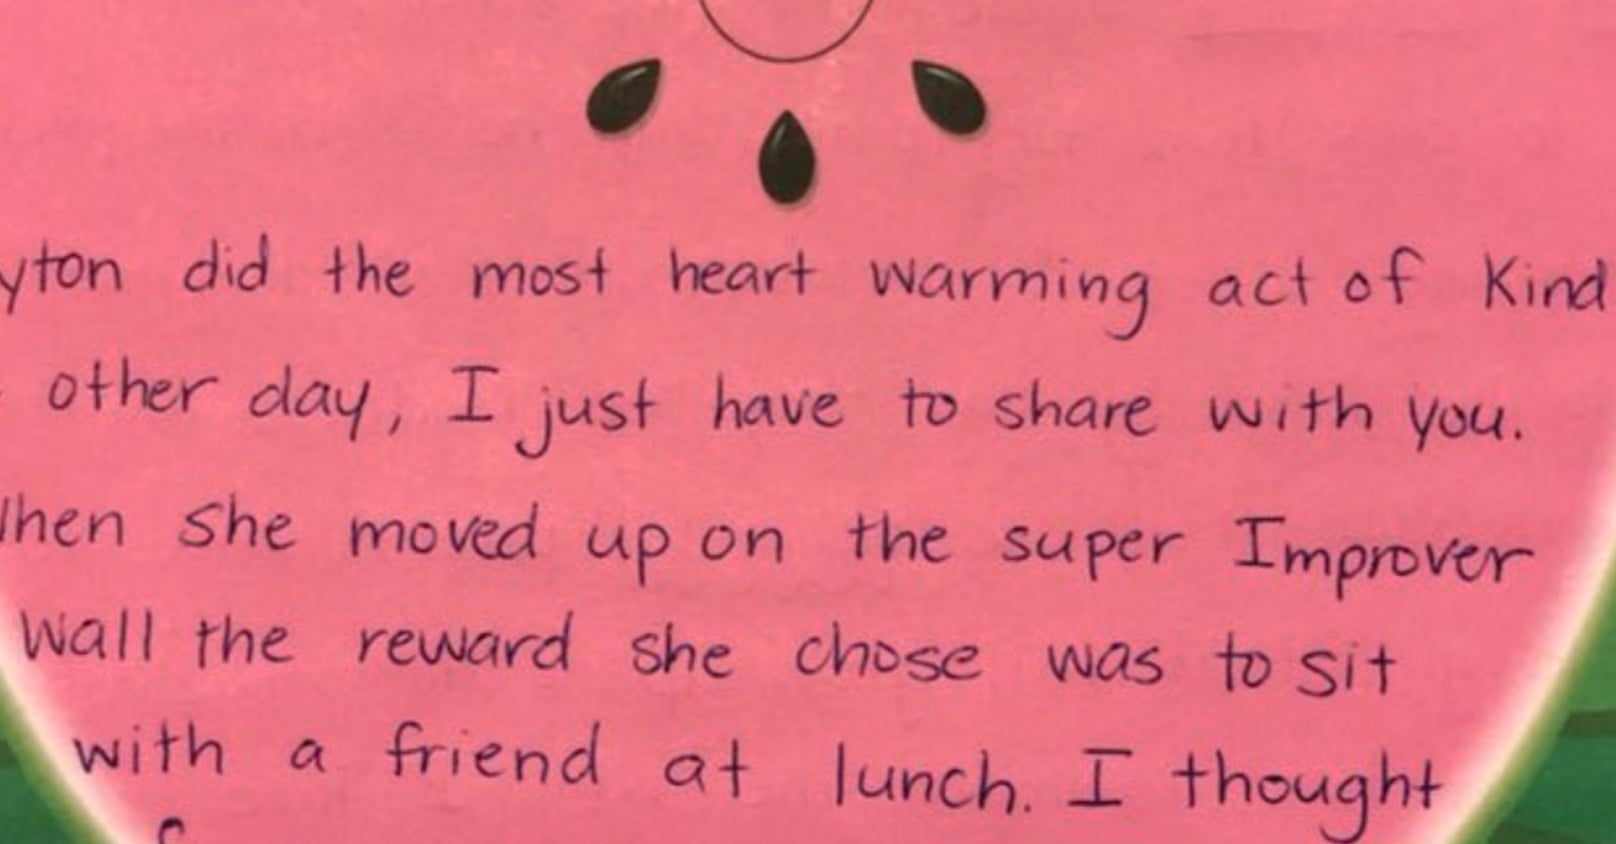 yton did the most heart warming act of Kind
other day, I just have to share with you.
hen She moved up on the super Improver
Wall the reward she chose was to sit
with a friend at lunch. I thought